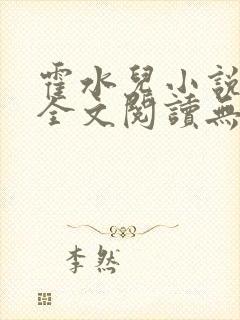 霍水兒小說
全文閱讀無
李然